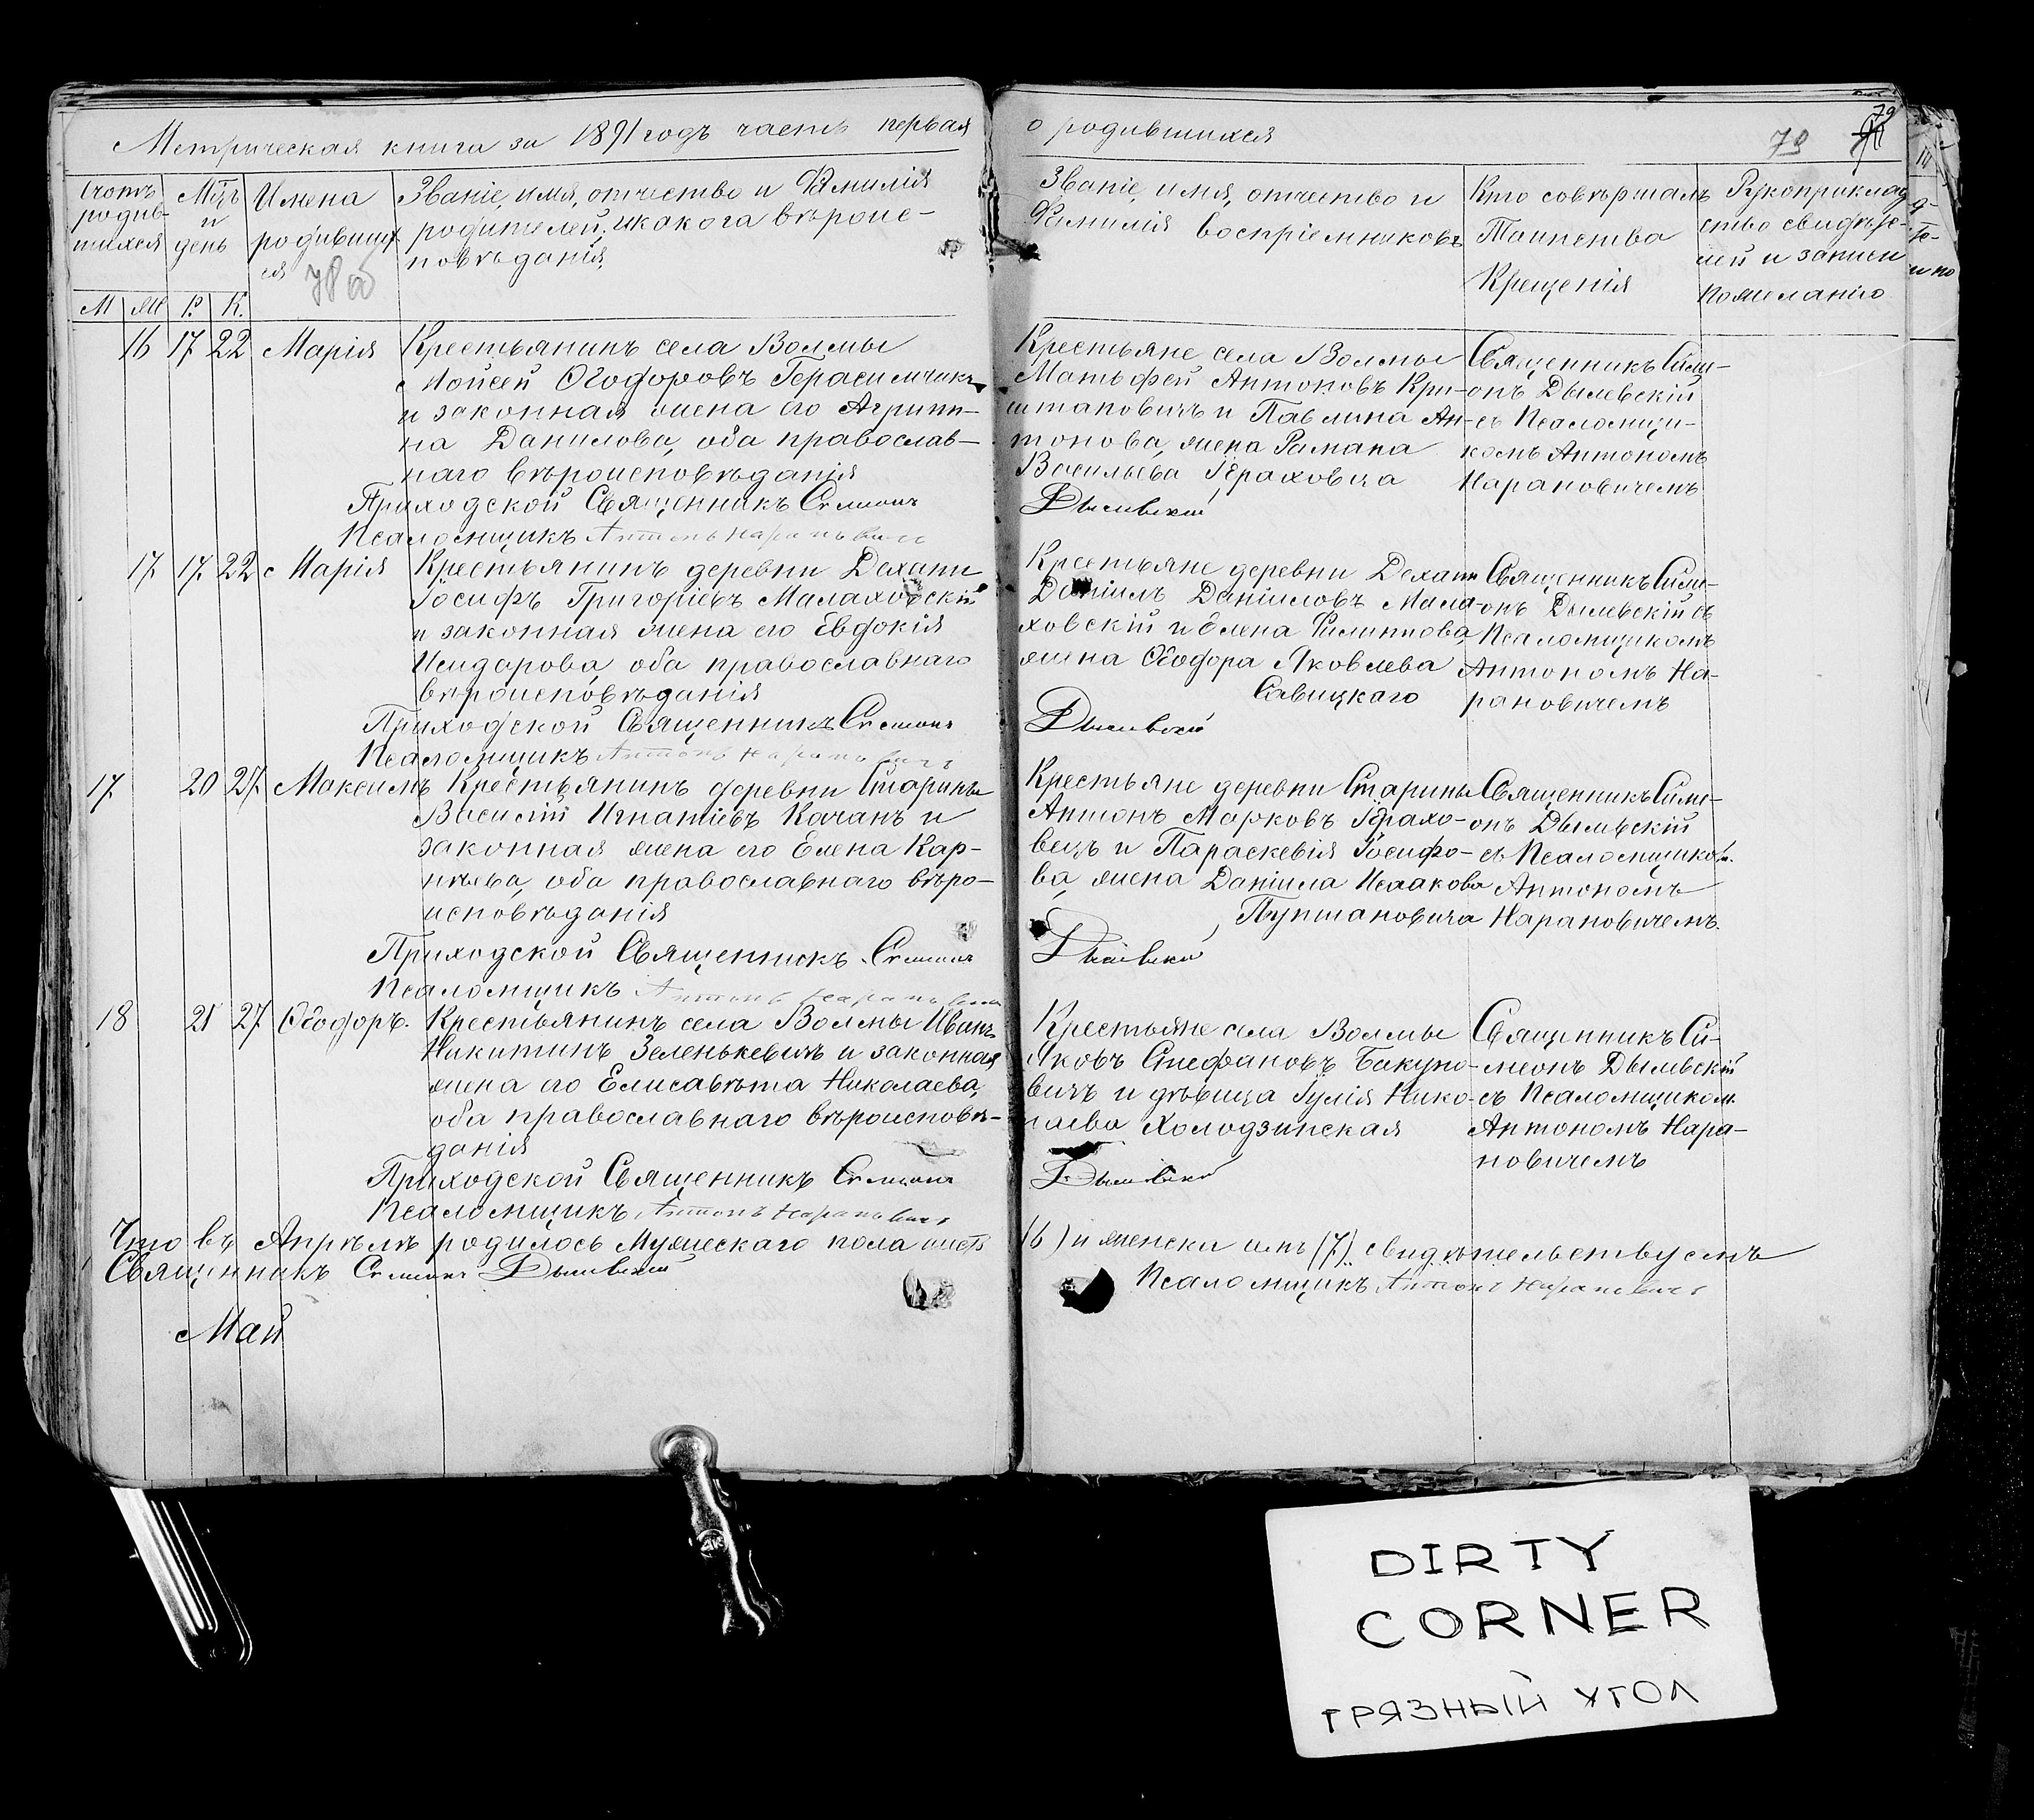 Метрическая книга за 1891 годъ часть первая
о родившихся
79
79
Счотъ родив-шихся
Мцъ и день
Имена родивших ся
78 об
Званіе, имя, отчество и Фамилія
родителей, и какого вѣроис-
повѣданія.
Званіе, имя, отчество и
Фамилія воспріемниковъ
Кто совѣршалъ
Таинства
Крещенія
Рукоприклад
ство свидѣте-
лей и записи
по желанію
М Ж Р. К.
16 17 22 Марія
Крестьянинъ села Волмы
Мойсей Ѳеодоровъ Герасимчикъ
и законная жена его Агрипи-
на Данилова, оба православ-
наго вѣроисповѣданія
Приходской Священникъ Симеонъ
Псаломщикъ Антонъ Нарановичъ
Крестьяне села Волмы
Матѳей Антоновъ Кри-
штаповичъ и Павлина Ан-
тонова, жена Рамана
Васильева Гераховича
Дылевскій
Священникъ Симе-
онъ Дылевскій
съ Псаломщи-
комъ Антономъ
Нарановичемъ
17 17 22 Марія
Крестьянинъ деревни Дехани
Іосифъ Григоріевъ Малаховскій
и законная жена его Евдокія
Исидорова, оба православнаго
вѣроисповѣданія
Приходской Священникъ Симеонъ
Псаломщикъ Антонъ Нарановичъ
Крестьяне деревни Дехани
Даніилъ Даніиловъ Мала-
ховскій и Елена Филиппова,
жена Ѳеодора Яковлева
Савицкаго
Дылевскій
Священникъ Симе-
онъ Дылевскій съ
Псаломщикомъ
Антономъ На-
рановичемъ
17 20 27 Максимъ
Крестьянинъ деревни Старины
Василій Игнатіевъ Качанъ и
законная жена его Елена Кар-
пѣева, оба православнаго вѣро-
исповѣданія
Приходской Священникъ Симеонъ
Псаломщикъ Антонъ Нарановичъ
Крестьяне деревни Старины
Антонъ Марковъ Герахо-
вецъ и Параскевія Іосифо-
ва, жена Даніила Исаакова
Пупшановича
Дылевскій
Священникъ Симе-
онъ Дылевскій
съ Псаломщиком.
Антономъ
Нарановичемъ.
18 21 27 Ѳеодоръ.
Крестьянинъ села Волмы Иванъ
Никитинъ Зеленькевичъ и законная
жена его Елисавѣта Николаева,
оба православнаго вѣроисповѣ-
данія
Приходской Священникъ Симеонъ
Псаломщикъ Антонъ Нарановичъ
Крестьяне села Волмы
Яковъ Стефановъ Бакуно-
вичъ и дѣвица Іулія Нико-
лаева Холодзинская
Дылевскій
Священникъ Си-
меонъ Дылевскій
съ Псаломщиком
Антономъ Нара-
новичемъ
Что въ Апрѣлѣ родилось Мужескаго пола шесть (6) и женска семь (7) свидѣтельствуемъ
Священникъ Симеонъ Дылевскій
Псаломщикъ Антонъ Нарановичъ
Май
DIRTY
CORNER
ГРЯЗНЫЙ УГОЛ